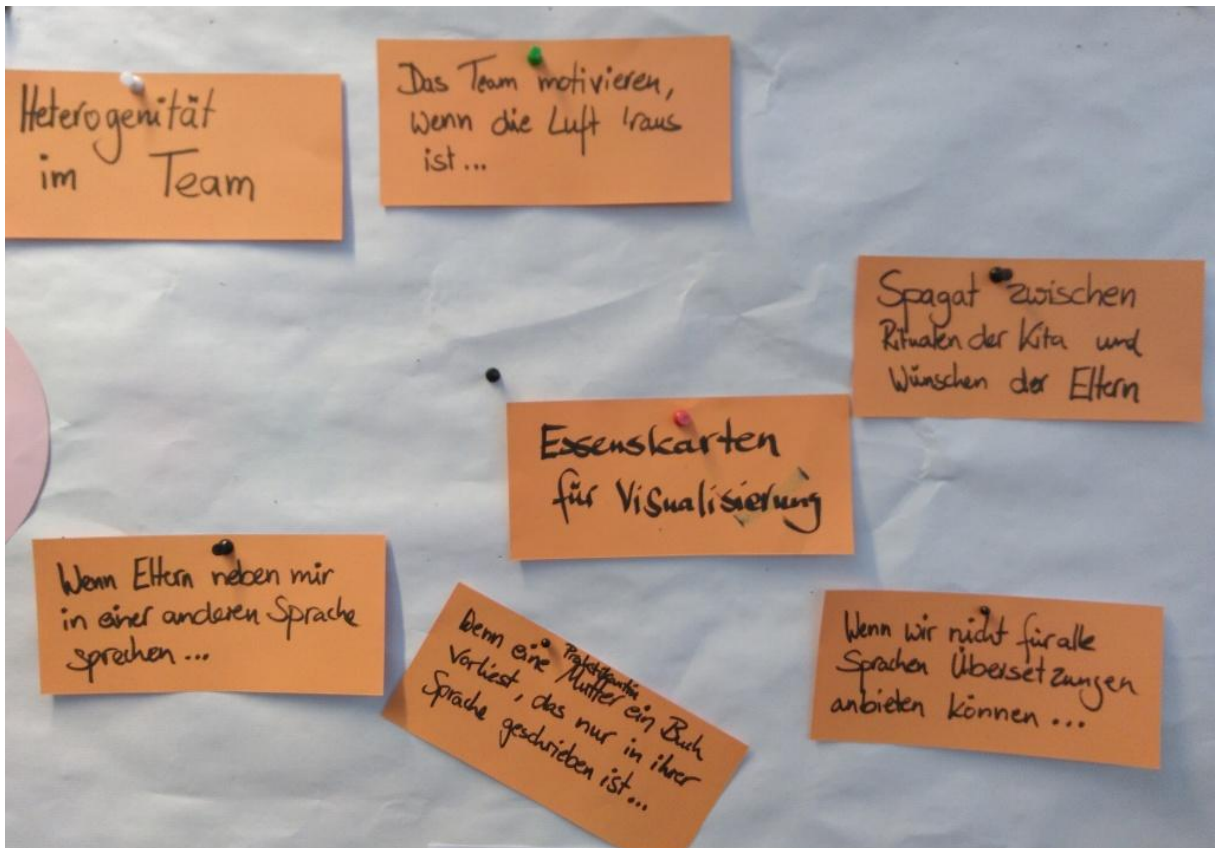 Heterogenität
im Team
Das Team motivieren,
wenn die Luft 'raus
ist...
Spagat zwischen
Ritualen der Kita und
Wünschen der Eltern
Essenskarten
für Visualisierung
Wenn Eltern neben mir
in einer anderen Sprache
sprechen...
Wenn eine Mutter ein Buch
Praktikantin
vorliest, das nur in ihrer
Sprache geschrieben ist...
Wenn wir nicht für alle
Sprachen Übersetzungen
anbieten können...